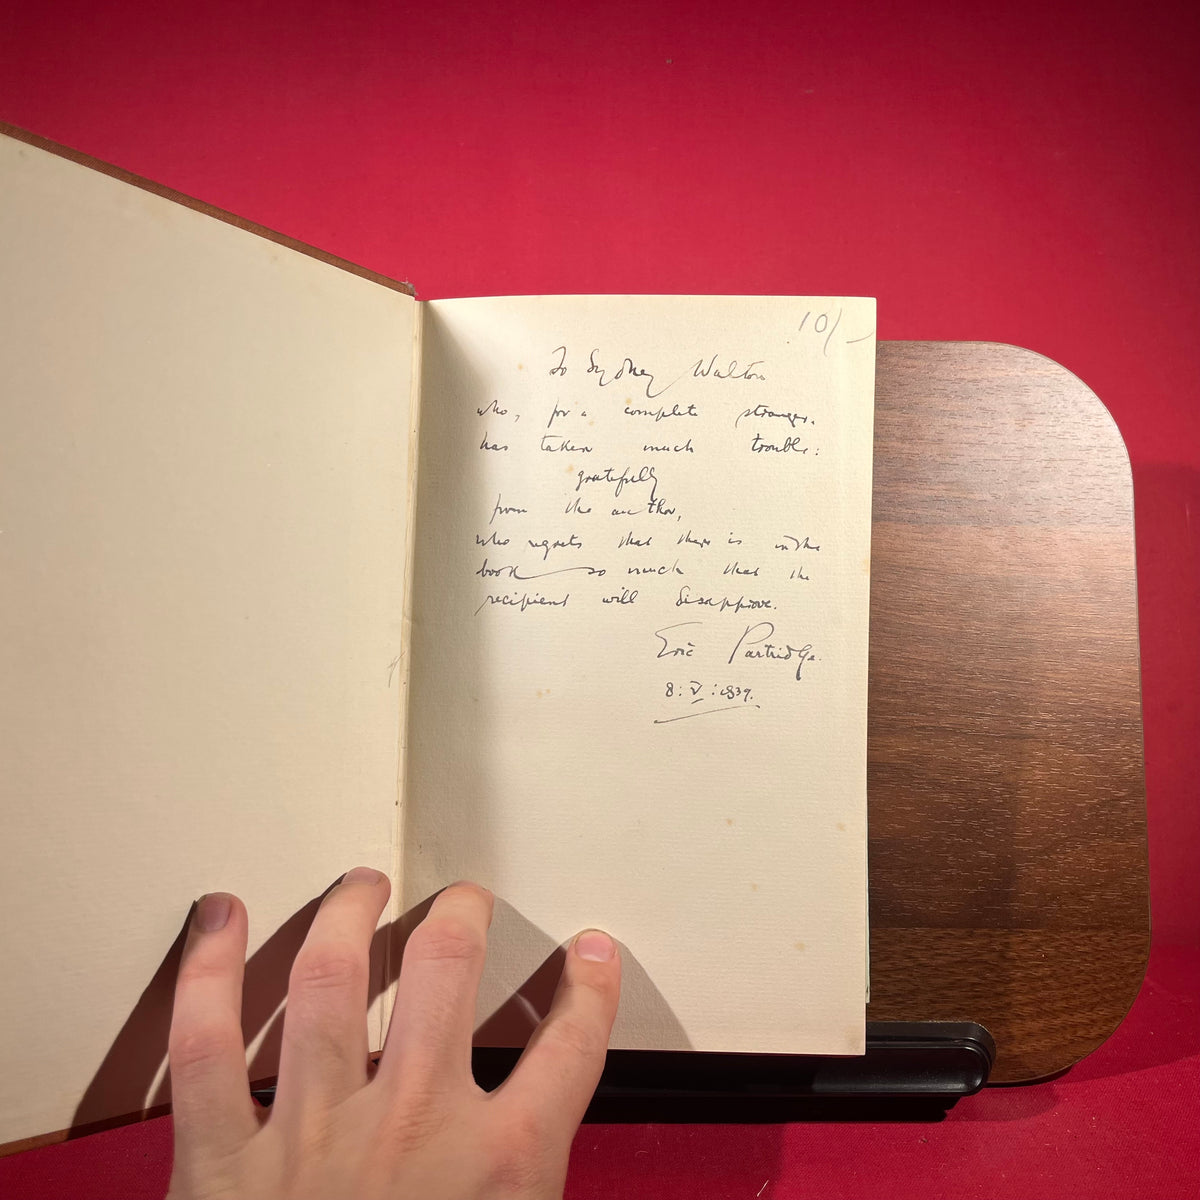 10/-
To Sydney Walton
who, for a complete stranger,
has taken much trouble:
gratefully
from the author,
who regrets that there is in the
book so much that the
recipient will disapprove.
Eric Partridge.
8:V:1939.